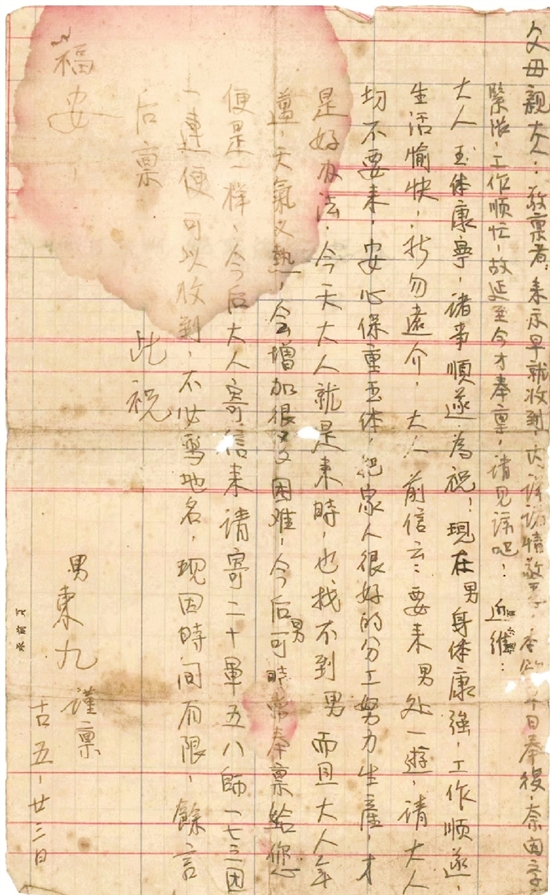 父母親大人：敬禀者，来示早就收到，内詳 情敬 日奉複，奈因
緊张，工作顺忙，故延至今才奉禀，请见谅吧！近维：
大人玉体康寧，诸事順遂，為祝！現在男身体康強，工作順遂
生活愉快，祈勿遠介，大人前信云：要来男处一遊，请大人
切不要来，安心保重玉体，把家人很好的分工努力生產，才
是好办法，今天大人就是来時，也找不到男，而且大人年
邁，天氣又熱，会增加很多困难，今后男可時常奉禀给您
便是一样，今后大人寄信来请寄二十軍五八師一七二团
一連便可以收到，不必寫地名，现因時间有限，餘言
后禀
此祝
福安
男東九謹禀
古五、廿三日